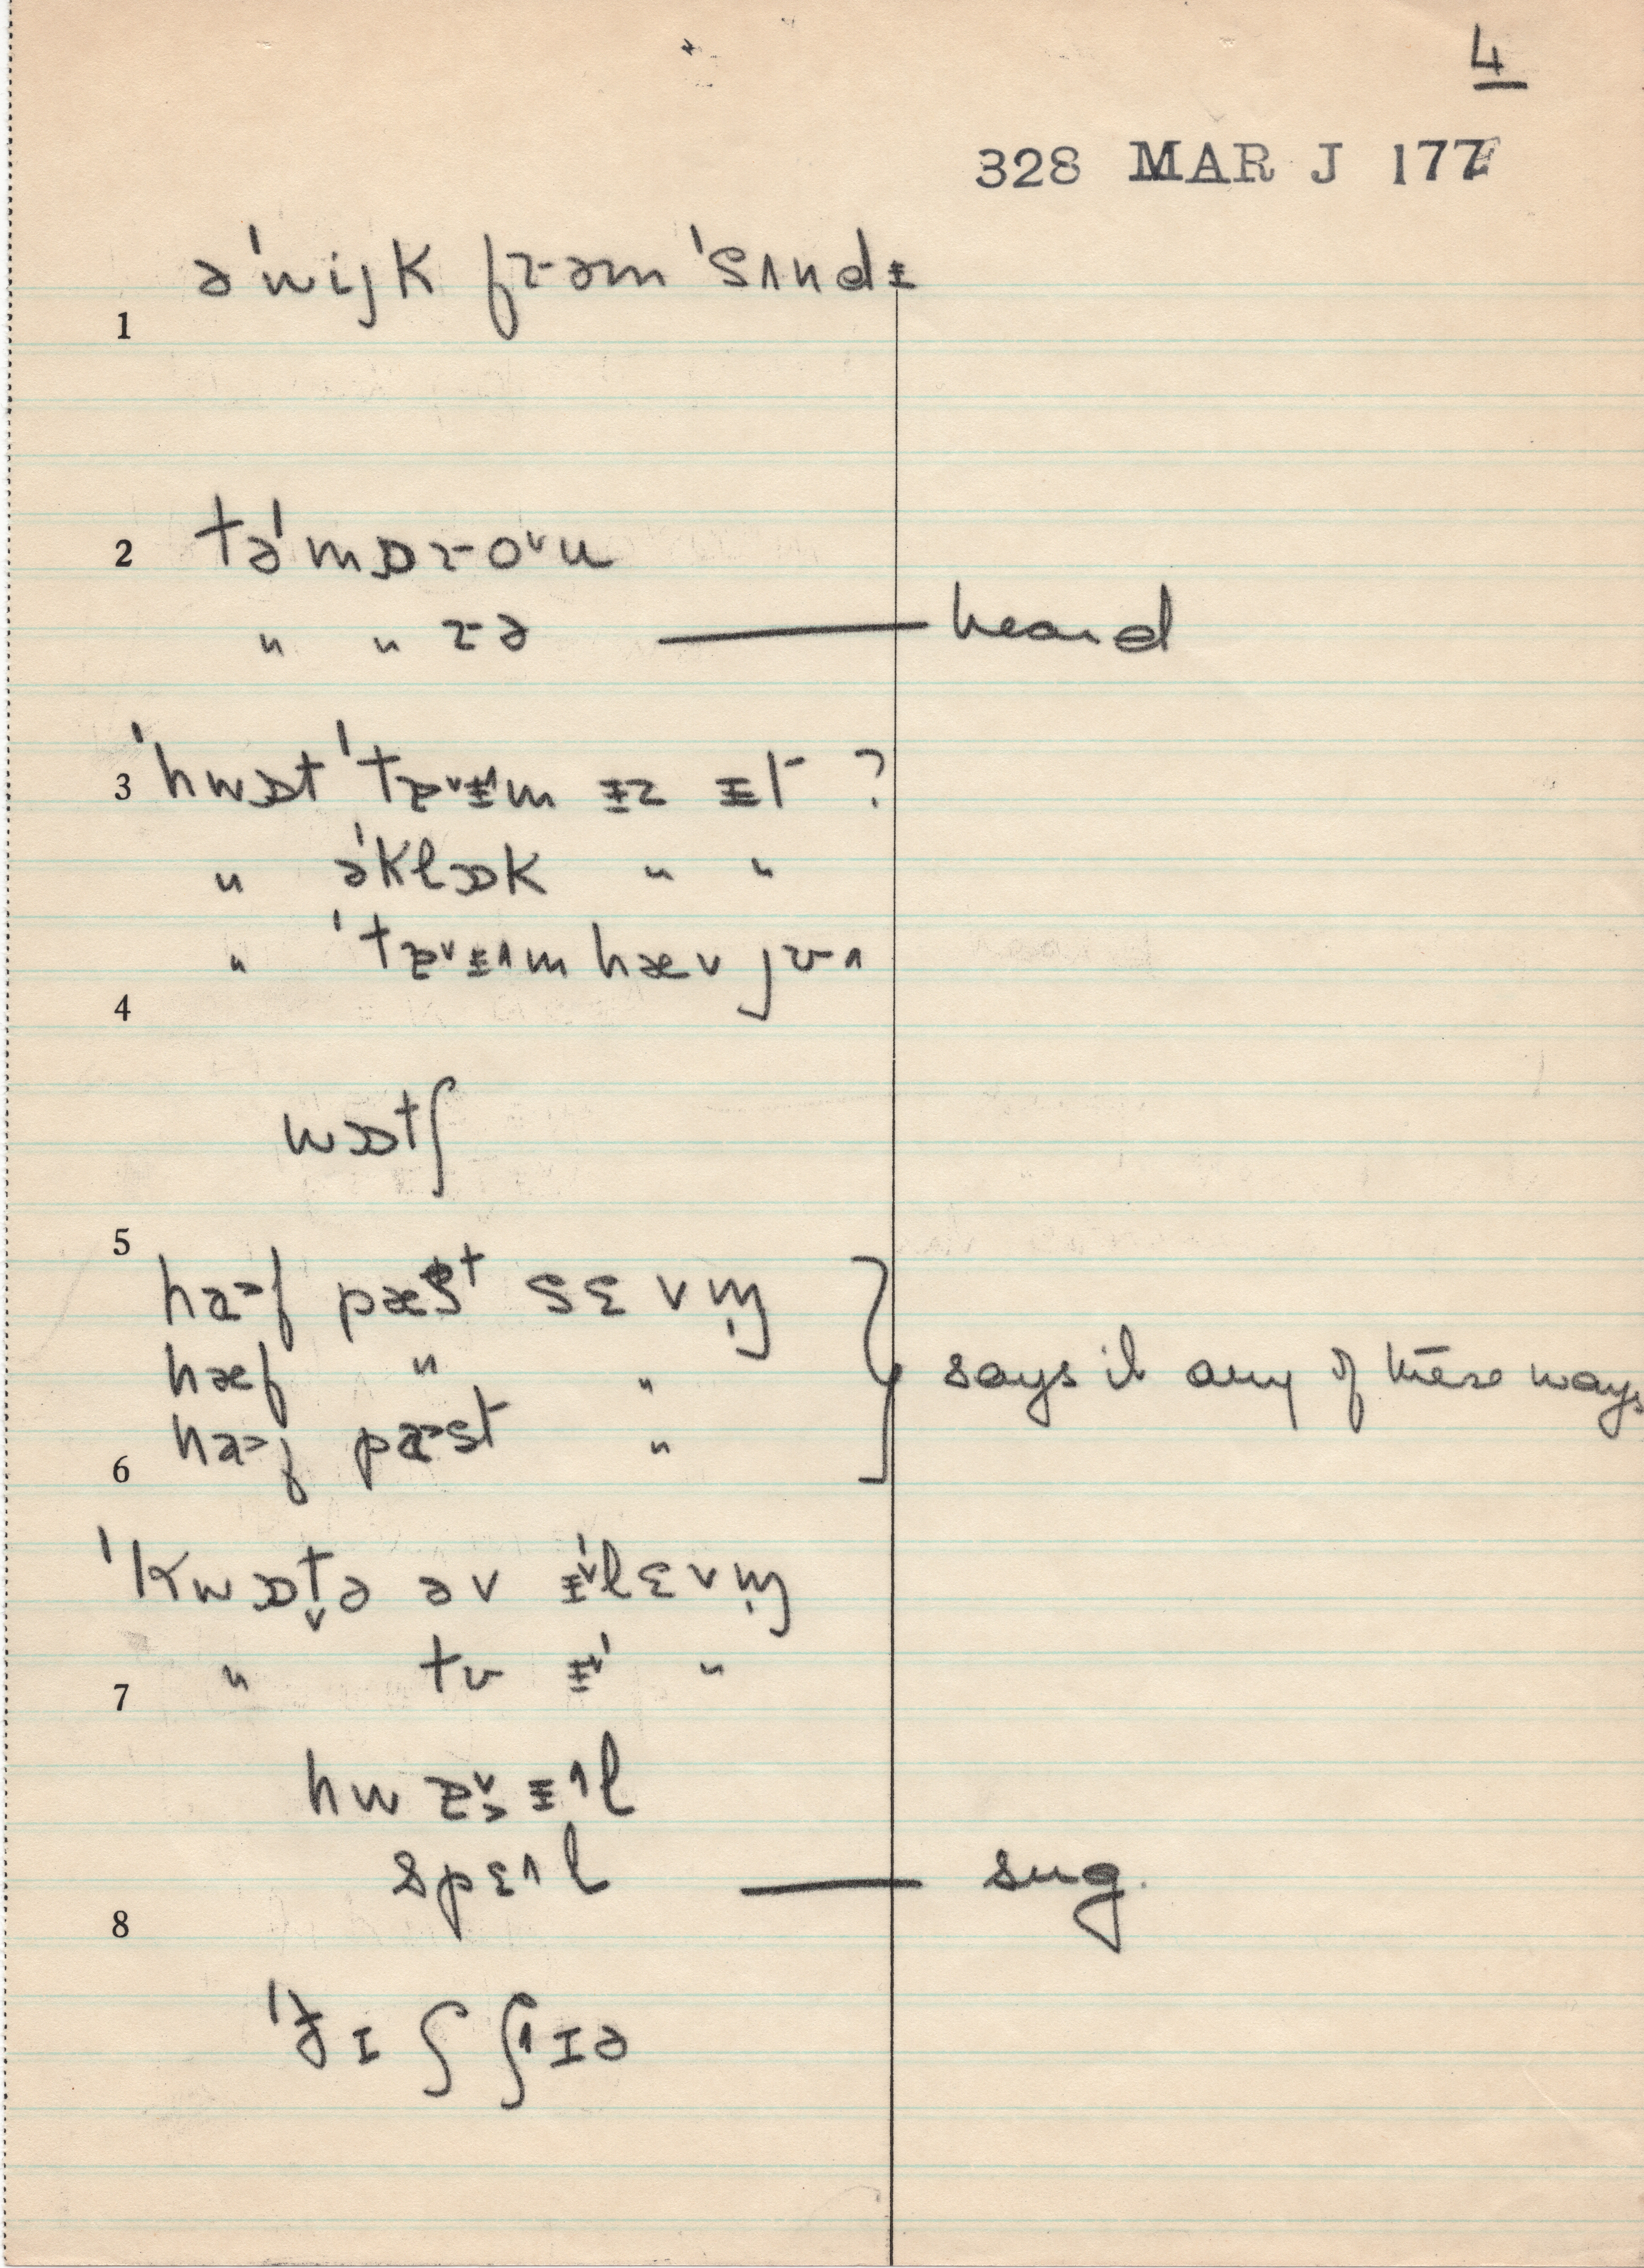 4
328 MAR J 177
1 əˈwijk frəm ˈsʌndᵻ
2 təˈmɒro˅u
" " rə — heard
3 ˈhwɒt ˈtɐ˅ᵻ^m ᵻz ᵻt ?
" əˈklɒk " "
" ˈtɐ˅ᵻ^m hæv jʊ^
4
wɒtʃ
5
ha>f pæst sɛvm̩
hæf " "
ha>f pa>st "
says it any of these ways
6
ˈkwɒt̬ə əv ᵻ˅ˈlɛvm̩
" tʊ ᵻ˅ˈ "
7
hwɐ˅>ᵻ^l
spɛ^l — sug.
8